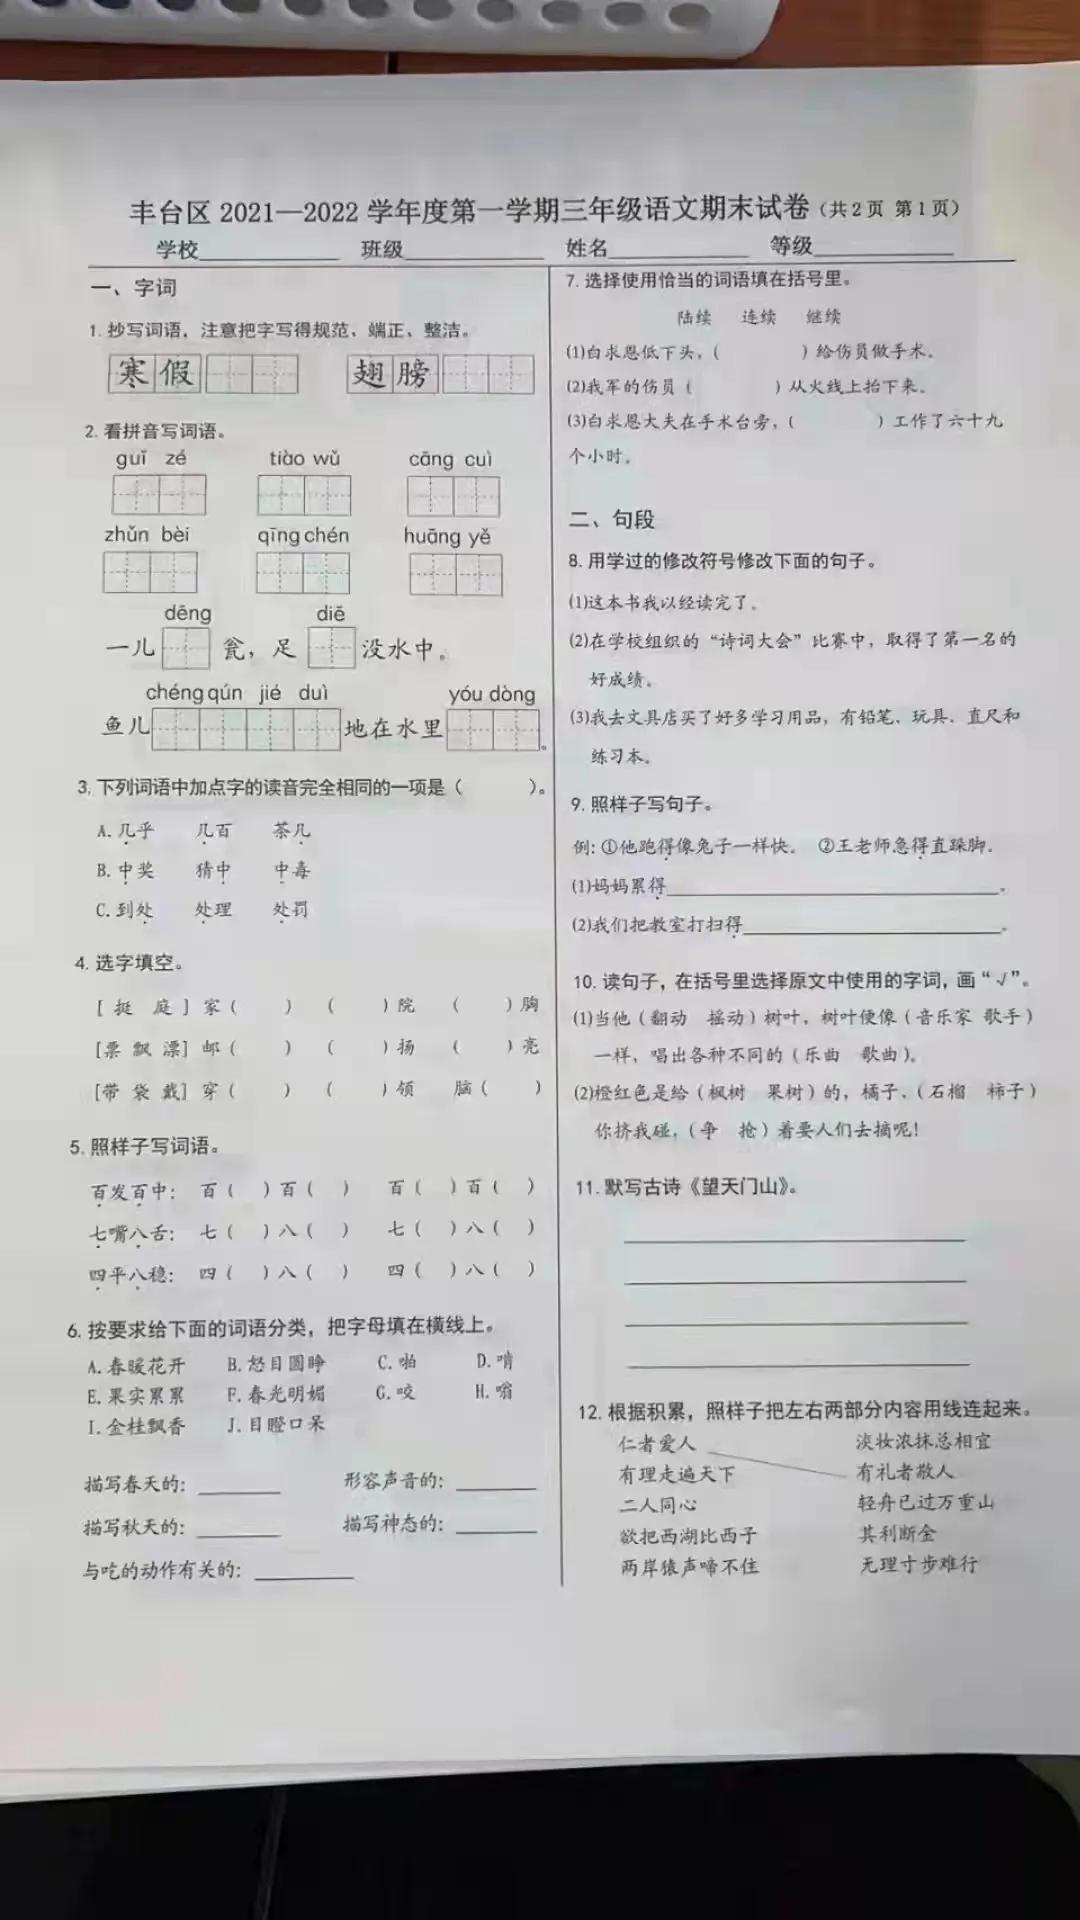 丰台区 2021—2022 学年度第一学期三年级语文期末试卷（共 2 页 第 1 页）
学校 班级 姓名 等级
一、字词
1. 抄写词语，注意把字写得规范、端正、整洁。
寒假 翅膀
2. 看拼音写词语。
guī zé tiào wǔ cāng cuì
zhǔn bèi qīng chén huāng yě
dēng diē
一儿 瓮，足 没水中。
chéng qún jié duì yóu dòng
鱼儿 地在水里 。
3. 下列词语中加点字的读音完全相同的一项是（ ）。
A. 几乎 几百 茶几
B. 中奖 猜中 中毒
C. 到处 处理 处罚
4. 选字填空。
[ 挺 庭 ] 家（ ） （ ）院 （ ）胸
[票 飘 漂] 邮（ ） （ ）扬 （ ）亮
[带 袋 戴] 穿（ ） （ ）领 脑（ ）
5. 照样子写词语。
百发百中： 百（ ）百（ ） 百（ ）百（ ）
七嘴八舌： 七（ ）八（ ） 七（ ）八（ ）
四平八稳： 四（ ）八（ ） 四（ ）八（ ）
6. 按要求给下面的词语分类，把字母填在横线上。
A. 春暖花开 B. 怒目圆睁 C. 啪 D. 啃
E. 果实累累 F. 春光明媚 G. 咬 H. 嗡
I. 金桂飘香 J. 目瞪口呆
描写春天的： 形容声音的：
描写秋天的： 描写神态的：
与吃的动作有关的：
7. 选择使用恰当的词语填在括号里。
陆续 连续 继续
(1)白求恩低下头，（ ）给伤员做手术。
(2)我军的伤员（ ）从火线上抬下来。
(3)白求恩大夫在手术台旁，（ ）工作了六十九
个小时。
二、句段
8. 用学过的修改符号修改下面的句子。
(1)这本书我以经读完了。
(2)在学校组织的“诗词大会”比赛中，取得了第一名的
好成绩。
(3)我去文具店买了好多学习用品，有铅笔、玩具、直尺和
练习本。
9. 照样子写句子。
例：①他跑得像兔子一样快。 ②王老师急得直跺脚。
(1)妈妈累得 。
(2)我们把教室打扫得 。
10. 读句子，在括号里选择原文中使用的字词，画“√”。
(1)当他（翻动 摇动）树叶，树叶便像（音乐家 歌手）
一样，唱出各种不同的（乐曲 歌曲）。
(2)橙红色是给（枫树 果树）的，橘子、（石榴 柿子）
你挤我碰，（争 抢）着要人们去摘呢！
11. 默写古诗《望天门山》。
12. 根据积累，照样子把左右两部分内容用线连起来。
仁者爱人 淡妆浓抹总相宜
有理走遍天下 有礼者敬人
二人同心 轻舟已过万重山
欲把西湖比西子 其利断金
两岸猿声啼不住 无理寸步难行